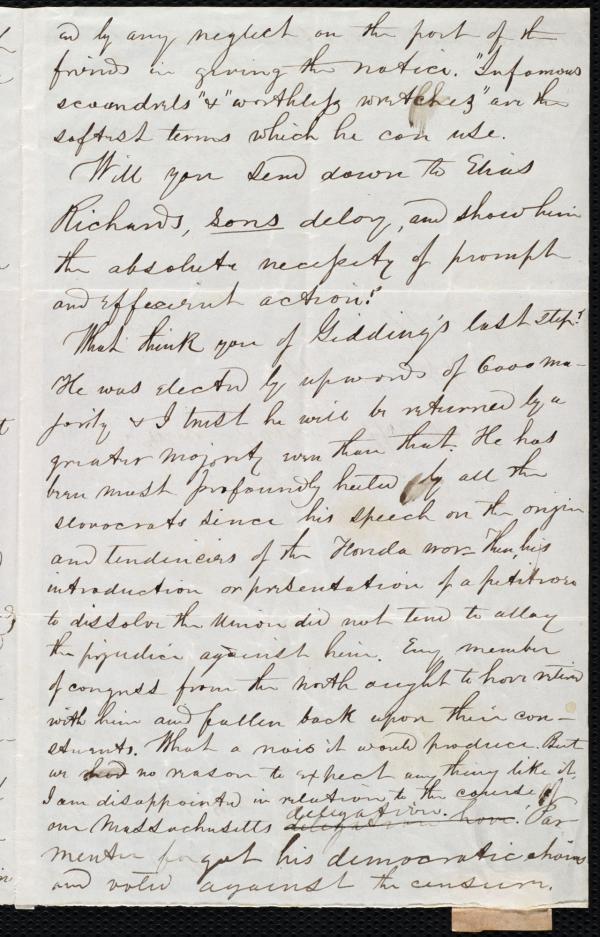 ed by any neglect on the part of the
friends in giving the notice. "Infamous
scoundrels" & "worthless wretches" are the
softest terms which he can use.
Will you send down to Elias
Richards, sons delay, and show him
the absolute necessity of prompt
and effecient action?
What think you of Gidding's last step?
He was elected by upwards of 6000 ma-
jority & I trust he will be returned by a
greater majority even than that. He has
been most profoundly hated by all the
slavocrats since his speech on the origin
and tendencies of the Florida war - Then, his
introduction or presentation of a petition
to dissolve the Union did not tend to allay
the prejudice against him. Every member
of congress from the north ought to have retired
with him and fallen back upon their con-
stituents. What a noise it would produce. But
we had no reason to expect any thing like it.
I am disappointed in relation to the course of
our Massachusetts delegation. Par
menter forgot his democratic chains
and voted against the censure.